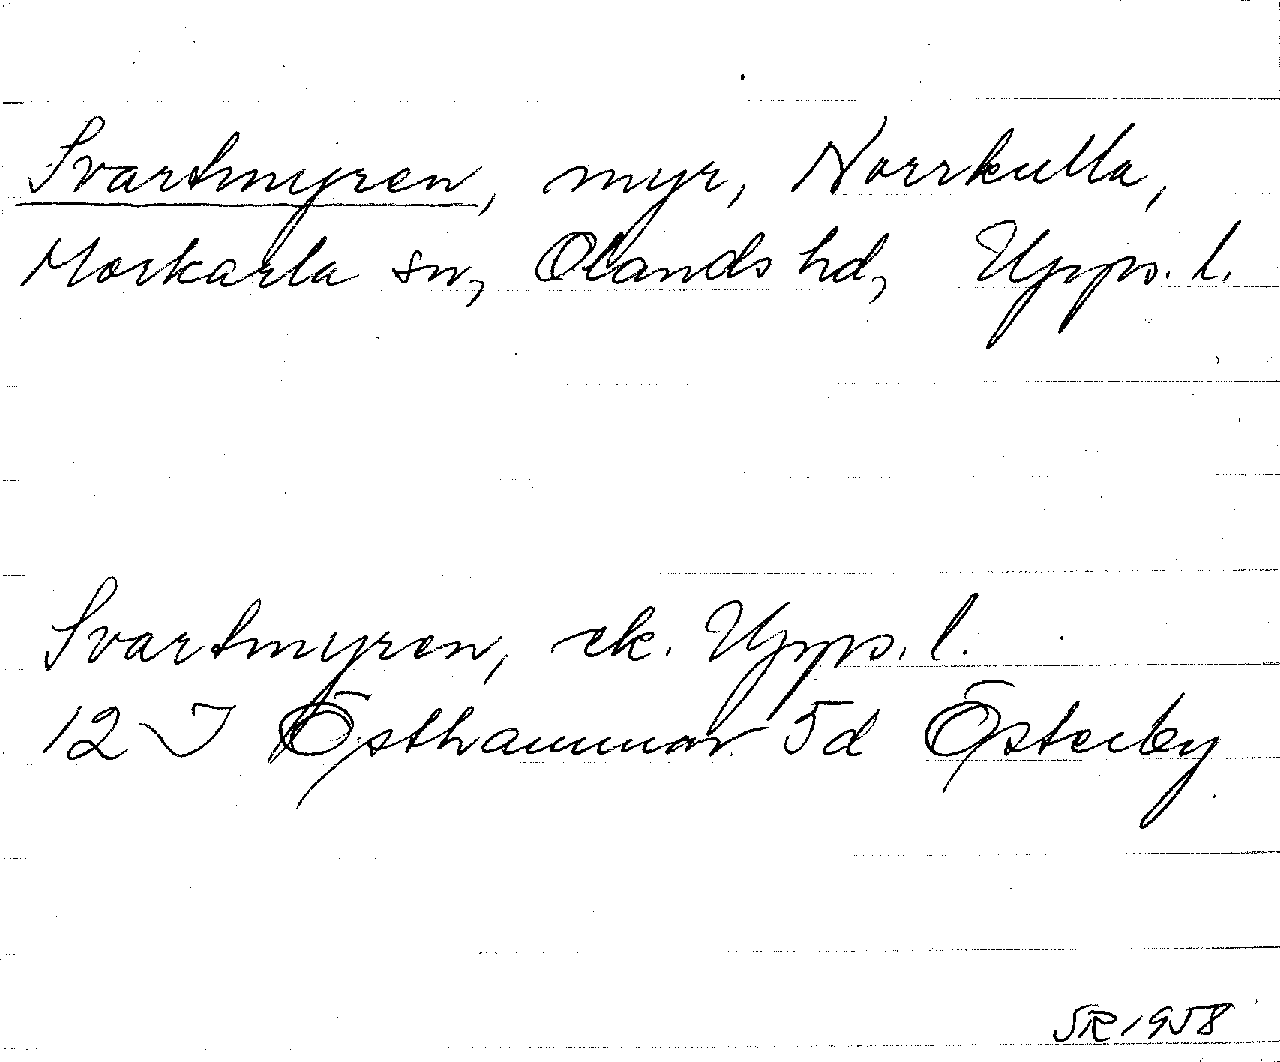 Svartmyren, myr, Norrkulla,
Morkarla sn, Olands hd, Upps. l.
Svartmyren, ek. Upps. l.
12 I Östhammar 5d Österby
SR 1958